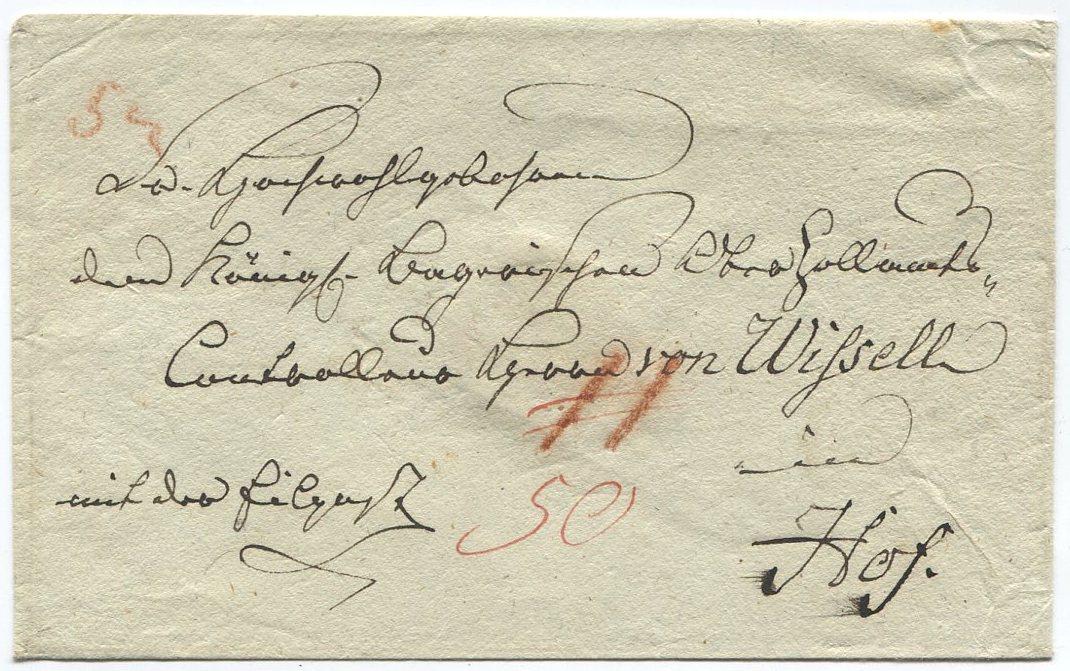 Sr. Hochwohlgeboren
dem Königl. Bayerischen Ober Zollamts-
Controlleur Herrn von Wissell
in
Hof.
mit der Eilpost
50